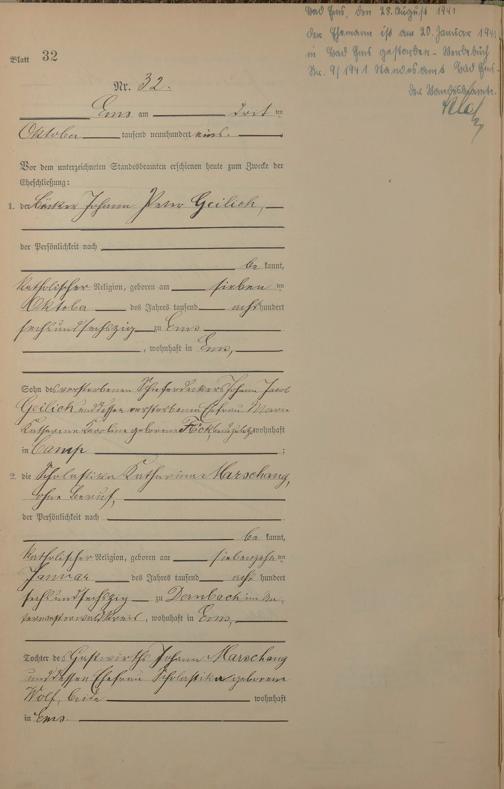 Bad Ems, den 28. August 1941
Der Ehemann ist am 20. Januar 1941
in Bad Ems gestorben - Sterbebuch
Nr. 9/1941 Standesamt Bad Ems-
Der Standesbeamte.
Blatt 32
Nr. 32.
Ems am drit en
Oktober tausend neunhundert eins.
Vor dem unterzeichneten Standesbeamten erschienen heute zum Zwecke der
Eheschließung:
1. der Bäcker Johann Peter Geilich,
der Persönlichkeit nach
be kannt,
katholischer Religion, geboren am sieben en
Oktober des Jahres tausend acht hundert
sechsundsechszig zu Ems
, wohnhaft in Ems,
Sohn des verstorbenen Schieferdeckers Johann Jacob
Geilich und dessen verstorbenen Ehefrau Maria
Katharina Karoline geborene zuletzt wohnhaft
in Camp ;
2. die Scholastika Katharina Marschang,
ohne Beruf,
der Persönlichkeit nach
be kannt,
katholischer Religion, geboren am siebenzehn en
Januar des Jahres tausend acht hundert
sechsundsechszig zu Dernbach im Un-
terwesterwaldkreis, wohnhaft in Ems,
Tochter des Gastwirths Johann Marschang
und dessen Ehefrau Scholastika geborene
Wolf, beide wohnhaft
in Ems